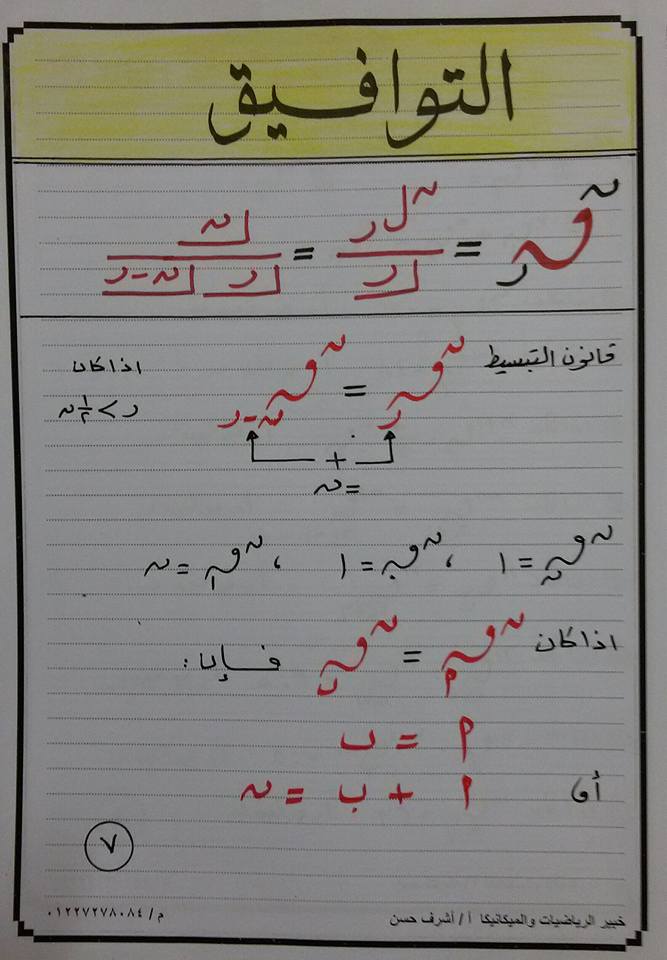 التوافيق
ⁿقر = ⁿلر / ⌊ر = ⌊ن / ⌊ر ⌊ن-ر
قانون التبسيط ⁿقر = ⁿقن-ر اذا كان
ر > ١/٢ ن
+
= ن
ⁿقن = ١ ، ⁿق٠ = ١ ، ⁿق١ = ن
اذا كان ⁿقم = ⁿقب فإن :
م = ب
أو م + ب = ن
٧
خبير الرياضيات والميكانيكا أ / أشرف حسن م / ٠١٢٢٧٢٧٨٠٨٤